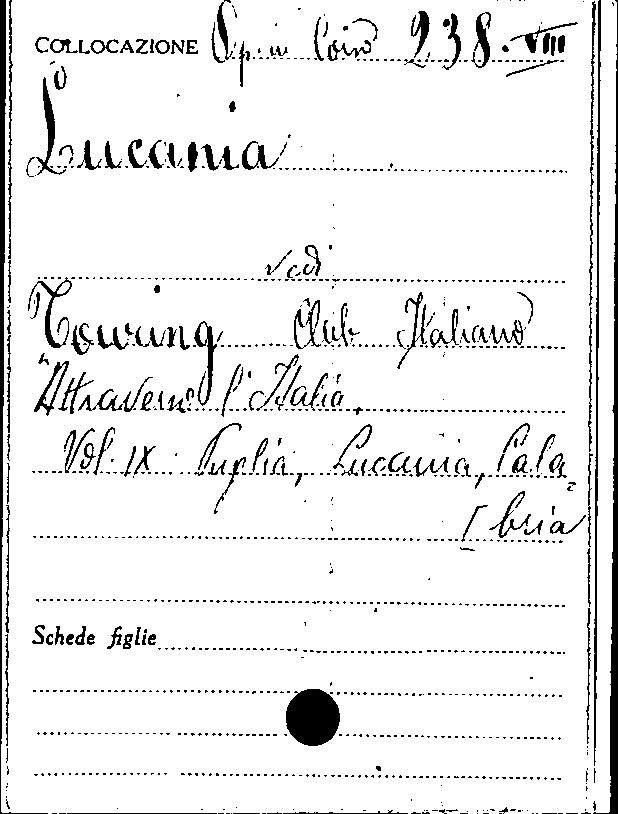 COLLOCAZIONE Op. in Coro 238. VIII
Lucania
vedi
Touring Club Italiano
"Attraverso l'Italia.
Vol. IX. Puglia, Lucania, Cala=
[bria
Schede figlie